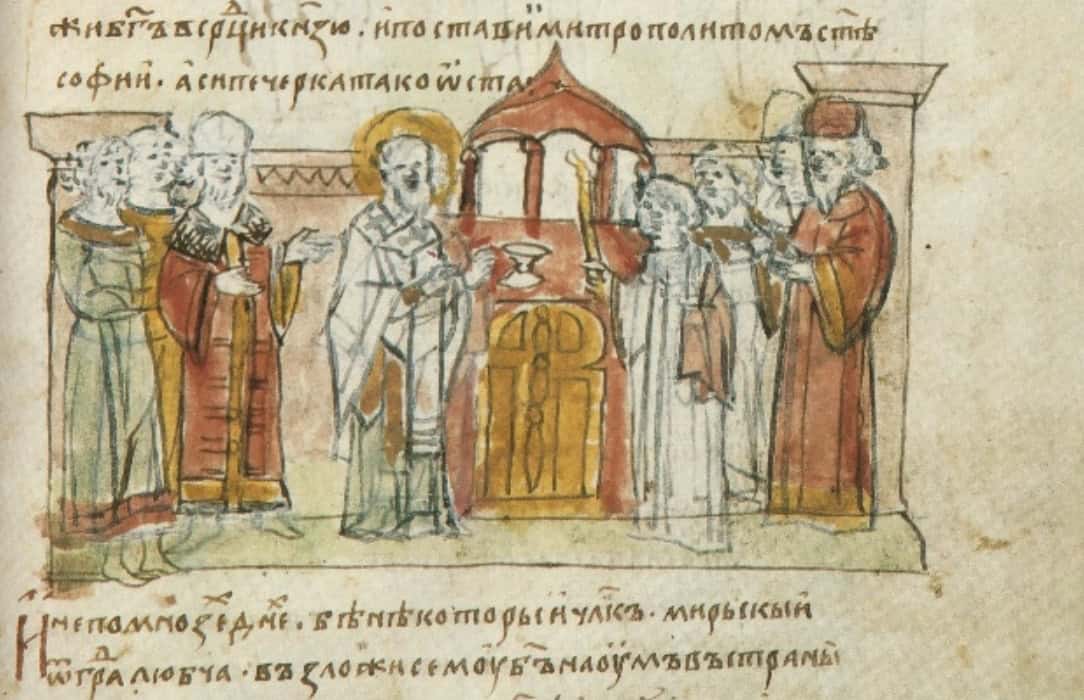 жи бг҃ъ в срⷣци кн҃зю . и постави и митрополитомъ ст҃ѣ
софии . а си печерка тако ѿста .
И не по мнозеⷯ дн҃е . бѣ нѣкоторыи чл҃къ . мирьскыи
ѿ граⷣ любча . възложи семоу бг҃ъ на оумъ въ страны